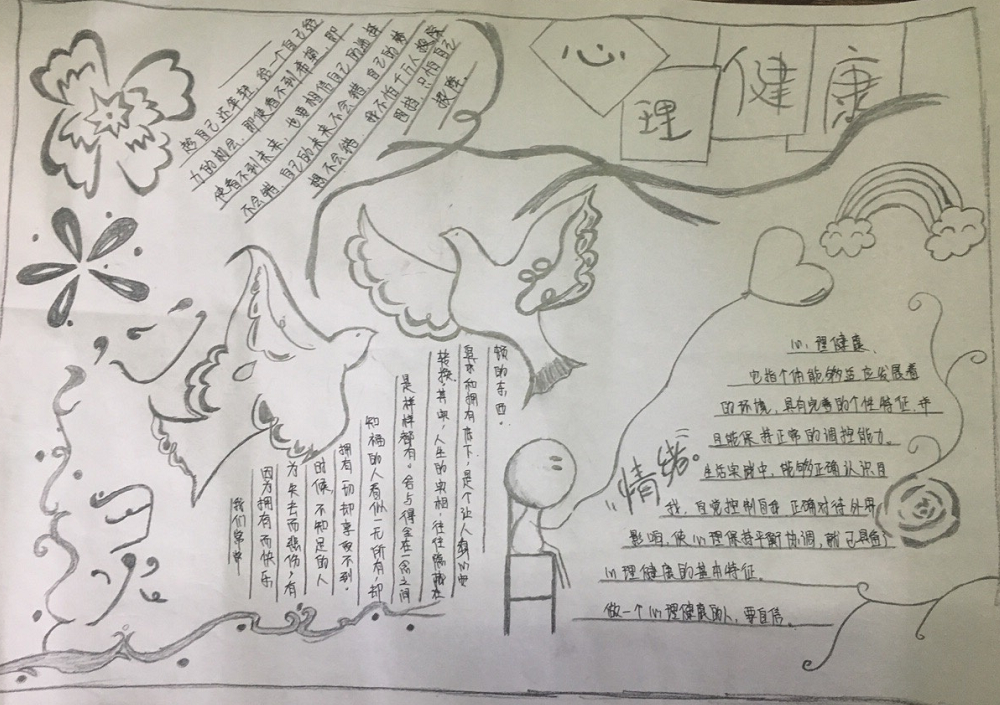 心理健康
趁自己还年轻,给一个自己努
力的制层,即使看不到希望,即
使看不到未来,也要相信自己的选择
不会错,自己的未来不会错,自己的梦
想不会错 我不怕千万人阻挡,只怕自己
投降.
我们常常
因为拥有而快乐
为失去而悲伤,有
时候,不知足的人
拥有一切却享受不到.
知福的人看似一无所有,却
是样样都有。舍与得全在一念之间
转换.其实,人生的实相,往往隐藏在
具求和拥有底下,是个让人
领的东西。
情绪。
心理健康.
它指个体能够适应发展着
的环境,具有完善的个性特征,并
且能保持正常的调控能力。
生活实践中,能够正确认识自
我,自觉控制自我 正确对待外界
影响,使心理保持平衡协调,就已具备了
心理健康的基本特征.
做一个心理健康的人,要自信.